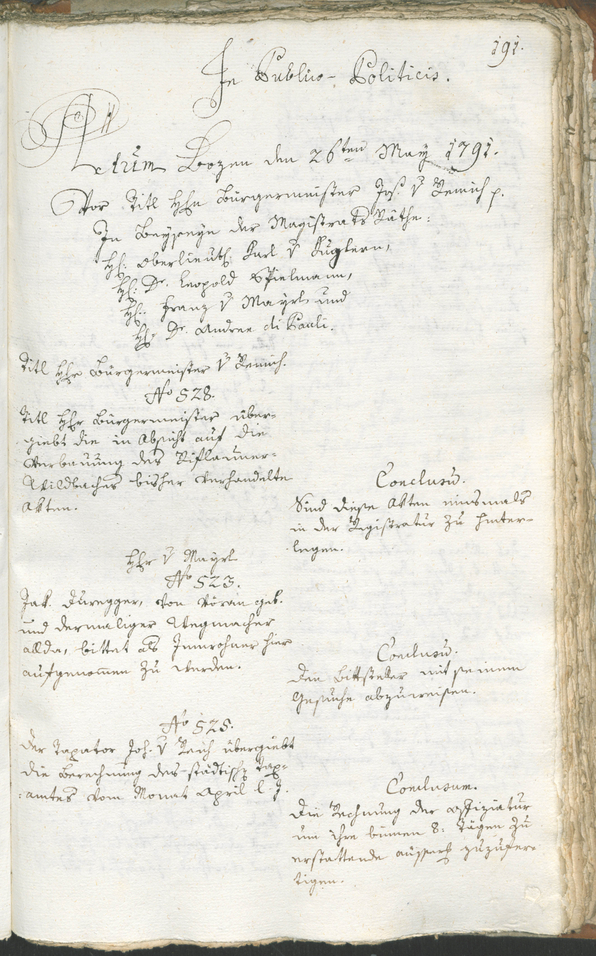 191.
In Publico-Politicis.
Actum Bozen den 26ten May 1791.
Vor Titl Hhn Bürgermeister Jos. v Remich p.
In Beyseyn der Magistrats Räthe:
HH: Oberlieut: Karl v Kuglern,
HH: Dr. Leopold Spielmann,
HH: Franz v Mayrl und
HH Dr. Andree di Pauli.
Titl Hhr Bürgermeister v Remich.
No 528.
Titl Hhr Bürgermeister über-
giebt die in Absicht auf die
Verbauung des Riflauner-
Wildbaches bisher verhandelte
Akten.
Conclusū.
Sind diese Akten einsmals
in der Registratur zu hinter-
legen.
Hhr v Mayrl
No 523.
Jak. Duregger, von Vöran geb.
und dermaliger Wegmacher
allda, bittet als Innwohner hier
aufgenommen zu werden.
Conclusū.
Den Bittsteller mit seinem
Gesuche abzuweisen.
No 525.
Der Taxator Joh. v Reich übergiebt
die Berechnung des städtisch Tax-
amtes vom Monat April l. J.
Conclusum.
Die Rechnung der Offiziatur
um ihre binnen 8. Tägen zu
erstattende zuzufer-
tigen.